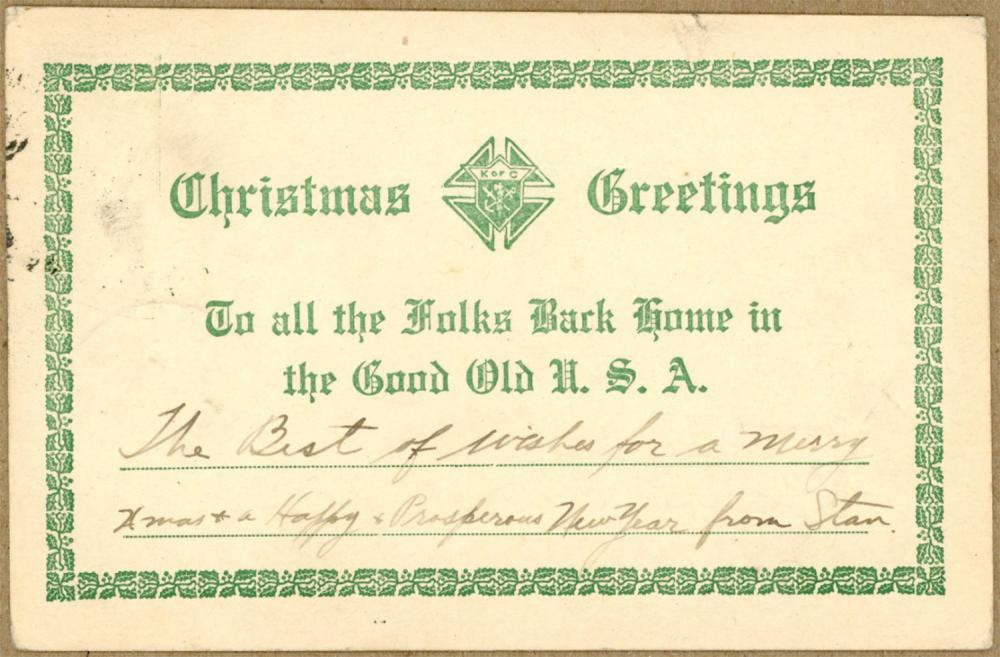 Christmas Greetings
K OF C
To all the Folks Back Home in
the Good Old U. S. A.
The Best of wishes for a Merry
Xmas + a Happy + Prosperous New Year from Stan.